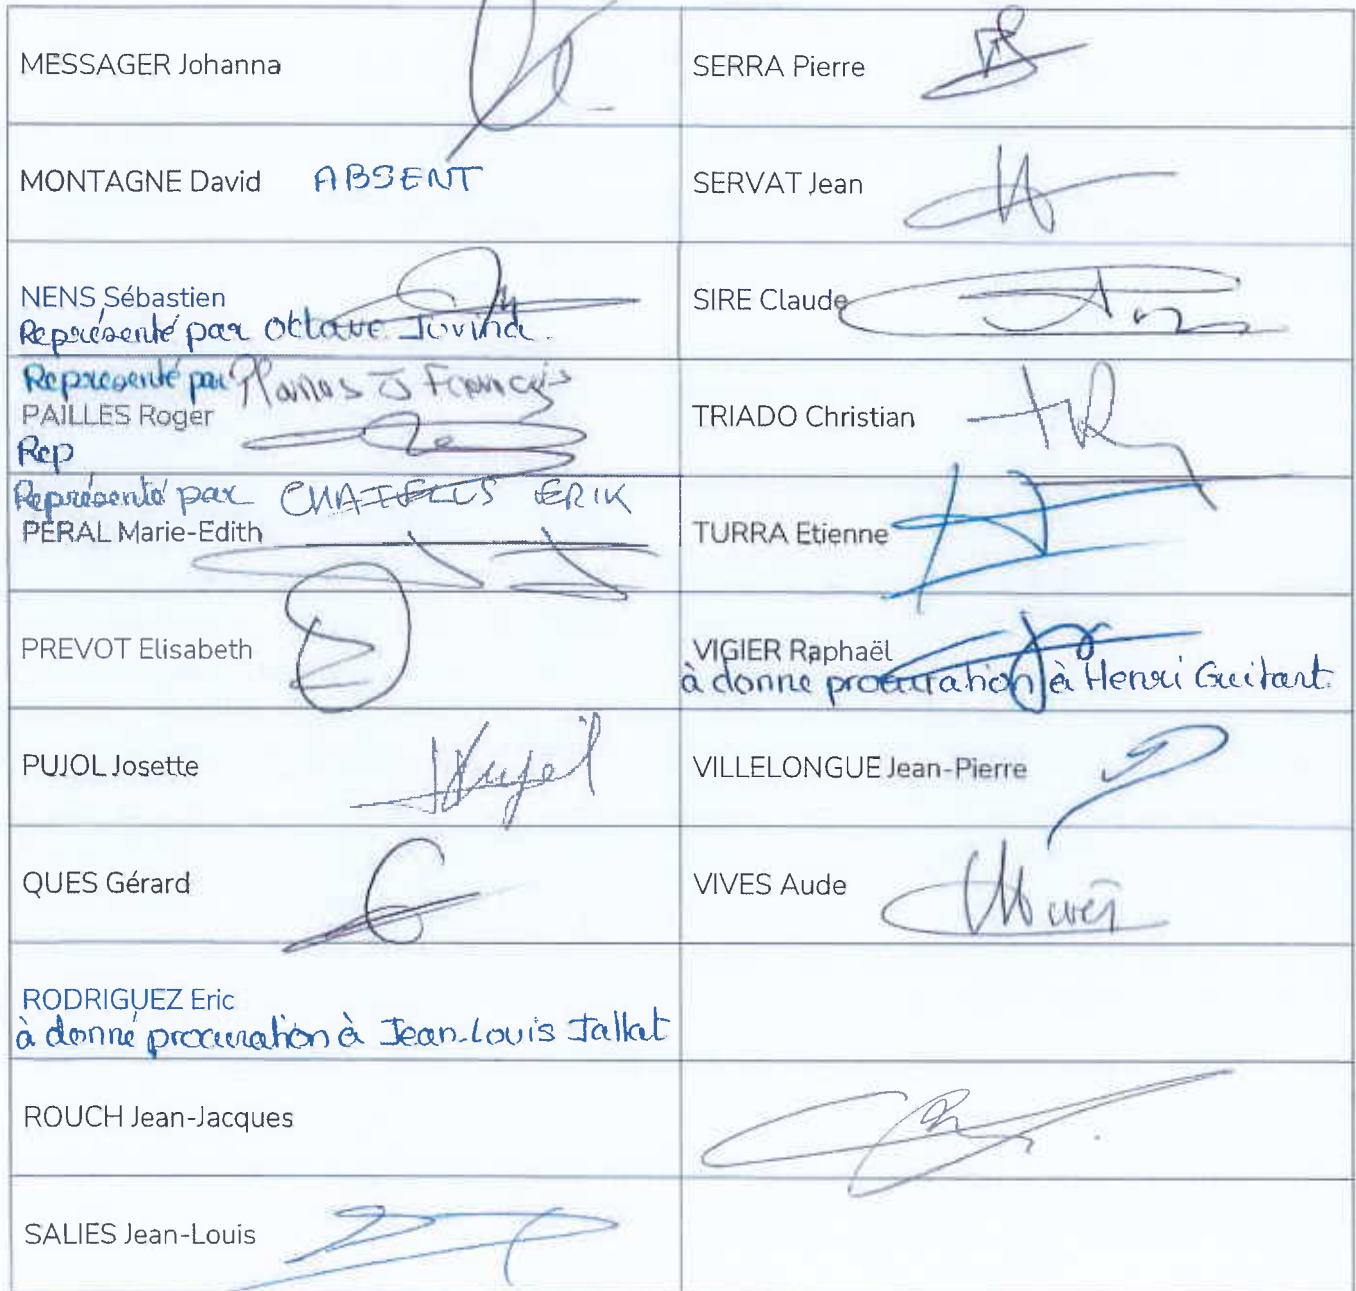 MESSAGER Johanna
SERRA Pierre
MONTAGNE David ABSENT
SERVAT Jean
NENS Sébastien
Représenté par Octave Jovina.
SIRE Claude
Représenté par Planas J François
PAILLES Roger
Rep
TRIADO Christian
Représenté par ERIK
PERAL Marie-Edith
TURRA Etienne
PREVOT Elisabeth
VIGIER Raphaël
à donne procuration à Henri Guitart.
PUJOL Josette
VILLELONGUE Jean-Pierre
QUES Gérard
VIVES Aude
RODRIGUEZ Eric
à donné procuration à Jean-Louis Jallat
ROUCH Jean-Jacques
SALIES Jean-Louis